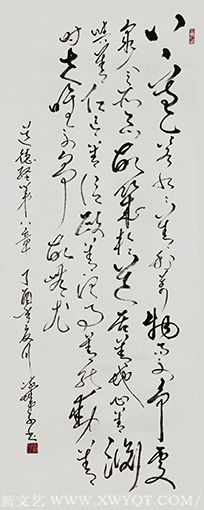 上善若水水善利萬物而不爭處
眾人之所惡故幾於道居善地心善淵
與善仁言善信政善治事善能動善
時夫唯不爭故無尤
道德經第八章 丁酉年夏月
新文艺/WWW.XWYQT.COM/